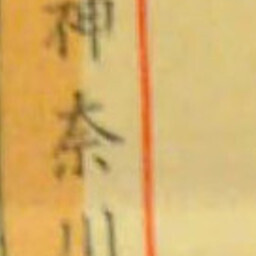 神奈川